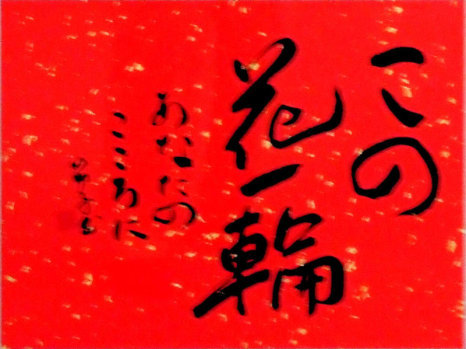 この
花一輪
あなたの
こころに